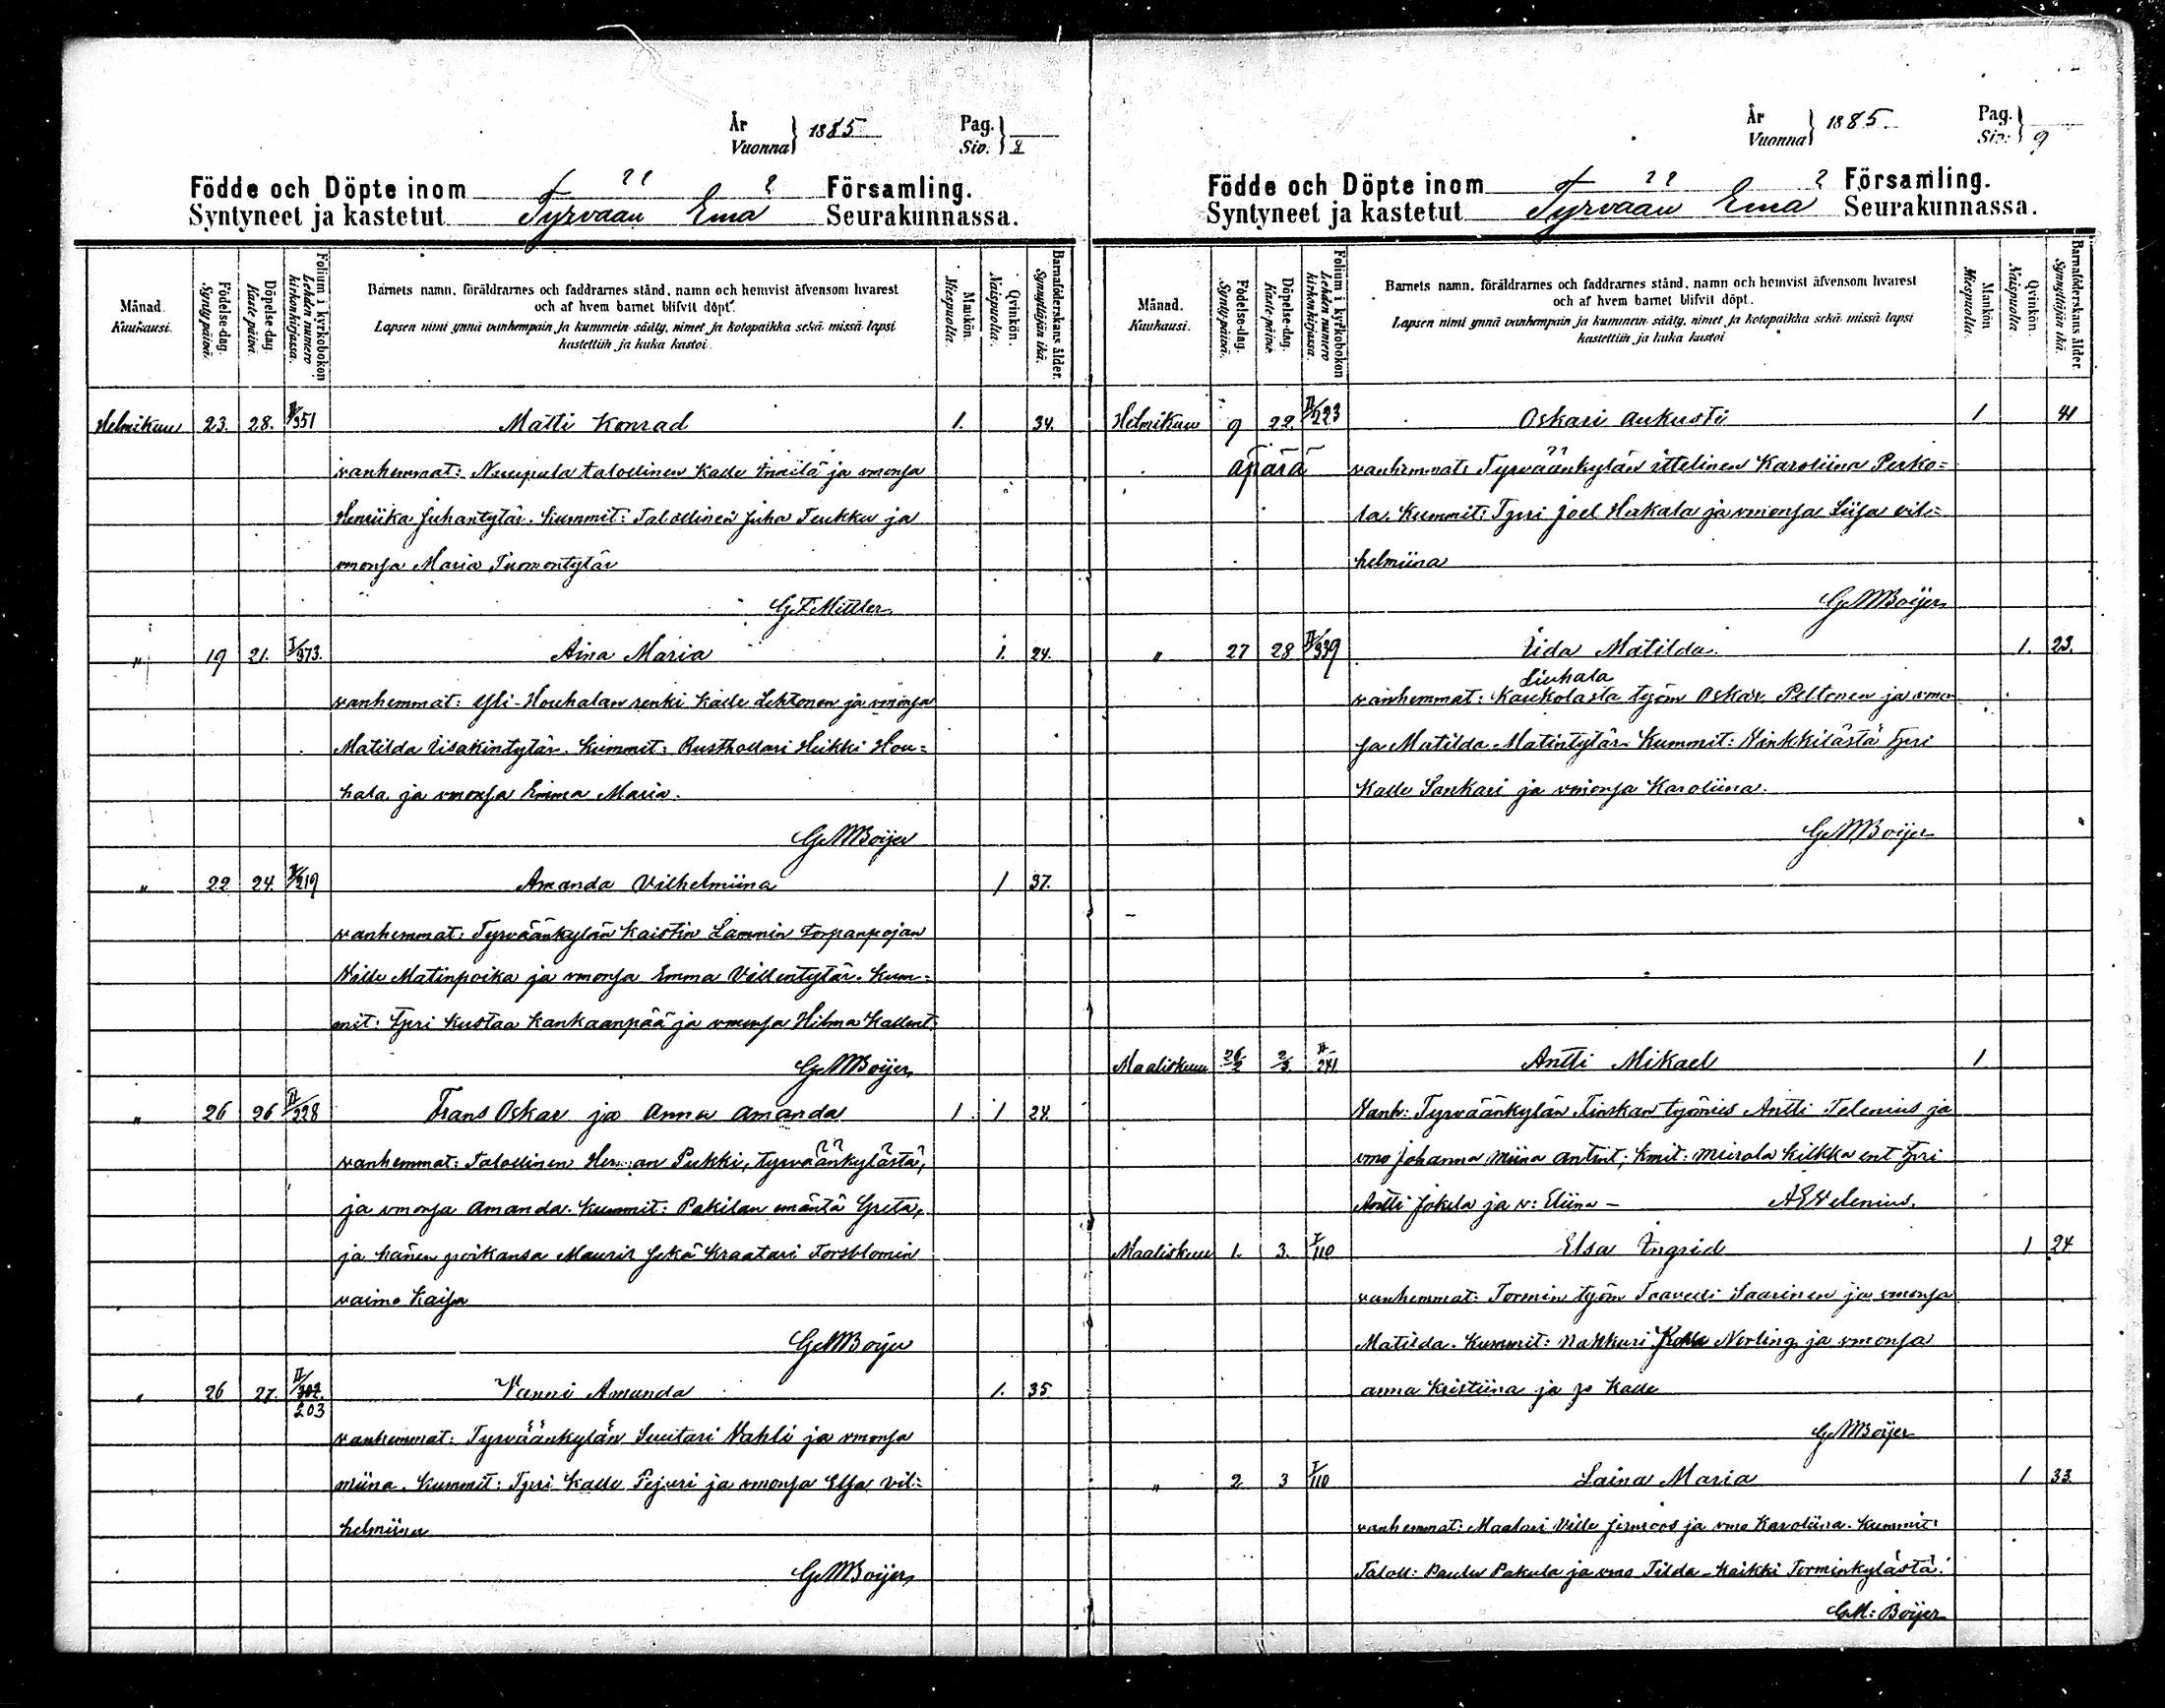 År
Vuonna } 1885
Pag.
Siv. } 8
Födde och Döpte inom Församling.
Syntyneet ja kastetut Tyrvään Emä Seurakunnassa.
Månad.
Kuukausi.
Födelse-dag.
Syntypäivä.
Döpelse-dag.
Kastepäivä.
Folium i kyrkoboken
Lehden numero kirkonkirjassa.
Barnets namn, föräldrarnes och faddrarnes stånd, namn och hemvist äfvensom hvarest
och af hvem barnet blifvit döpt.
Lapsen nimi ynnä vanhempain ja kummein sääty, nimet ja kotopaikka sekä missä lapsi
kastettiin ja kuka kastoi.
Mankön.
Miespuolta.
Qvinkön.
Naispuolta.
Barnaföderskans ålder.
Synnyttäjän ikä.
Helmikuu 23. 28. II/351 Matti Konrad 1. 34.
vanhemmat: Nuupala talollinen Kalle ja vmonsa
Henriika Juhantytär. Kummit: Talollinen Juha Teukku ja
vmonsa Maria Tuomontytär
G.F.Mittler.
" 19 21. I/373. Aina Maria 1. 24.
vanhemmat: Yli-Houhalan renki Kalle Lehtonen ja vmonsa
Matilda Iisakintytär. Kummit: Rusthollari Heikki Hou-
hala ja vmonsa Emma Maria.
G.M.Boijer
" 22 24. II/219 Amanda Vilhelmiina 1 37.
vanhemmat: Tyrväänkylän Kaistin Lammin torpanpojan
Ville Matinpoika ja vmonsa Emma Villentytär. Kum-
mit: Tpri Kustaa Kankaanpää ja vmonsa Hilma Kallent.
G.M.Boijer
" 26 26 II/228 Frans Oskar ja Anna Amanda 1. 1 24.
vanhemmat: Talollinen Herman Pukki, Tyrväänkylästä,
ja vmonsa Amanda. Kummit: Pakilan emäntä Greta,
ja hänen poikansa Mauriz sekä Kraatari Forsblomin
vaimo Kaisa
G.M.Boijer
" 26 27. II/302. 203 Vanni Amanda 1. 35
vanhemmat: Tyrväänkylän Suutari Vahli ja vmonsa
Miina. Kummit: Tpri Kalle Pejuri ja vmonsa Elsa Vil-
helmiina
G.M.Boijer
År
Vuonna } 1885.
Pag.
Siv. } 9
Födde och Döpte inom Församling.
Syntyneet ja kastetut Tyrvään Emä Seurakunnassa.
Månad.
Kuukausi.
Födelse-dag.
Syntypäivä.
Döpelse-dag.
Kastepäivä.
Folium i kyrkoboken
Lehden numero kirkonkirjassa.
Barnets namn, föräldrarnes och faddrarnes stånd, namn och hemvist äfvensom hvarest
och af hvem barnet blifvit döpt.
Lapsen nimi ynnä vanhempain ja kummein sääty, nimet ja kotopaikka sekä missä lapsi
kastettiin ja kuka kastoi
Mankön
Miespuolta.
Qvinkön.
Naispuolta.
Barnaföderskans ålder.
Synnyttäjän ikä.
Helmikuu 9 22 II/223 Oskari Aukusti 1 41
äpärä vanhemmat: Tyrväänkylän ittelinen Karoliina Perko-
la. Kummit: Tpri Joel Hakala ja vmonsa Liisa Vil-
helmiina
G.M.Boijer
" 27 28 II/339 Iida Matilda. 1. 23.
Liuhala
vanhemmat: Kaukolasta työm Oskar Peltonen ja vmon
sa Matilda Matintytär. Kummit: Vinkkilästä Tpri
Kalle Sankari ja vmonsa Karoliina.
G.M.Boijer
Maaliskuu 26/2 2/3. II/241 Antti Mikael 1
Vanh: Tyrväänkylän Finskan työmies Antti Telenius ja
vmo Johanna Miina Antint; Kmit: Meirala Kilkka ent Tpri
Antti Jokela ja v: Eliina — A E Helenius.
Maaliskuu 1. 3. I/110 Elsa Ingrid 1 24
vanhemmat: Tormin työm Taavetti Saarinen ja vmonsa
Matilda. Kummit: Nahkuri Kalle Norling ja vmonsa
Anna Kristiina ja po Kalle
G.M.Boijer
" 2 3 I/110 Laina Maria 1 33.
vanhemmat: Maalari Ville ja vmo Karoliina. Kummit:
Taloll: Paulu Pakula ja vmo Tilda - Kaikki Torminkylästä.
G.M: Boijer